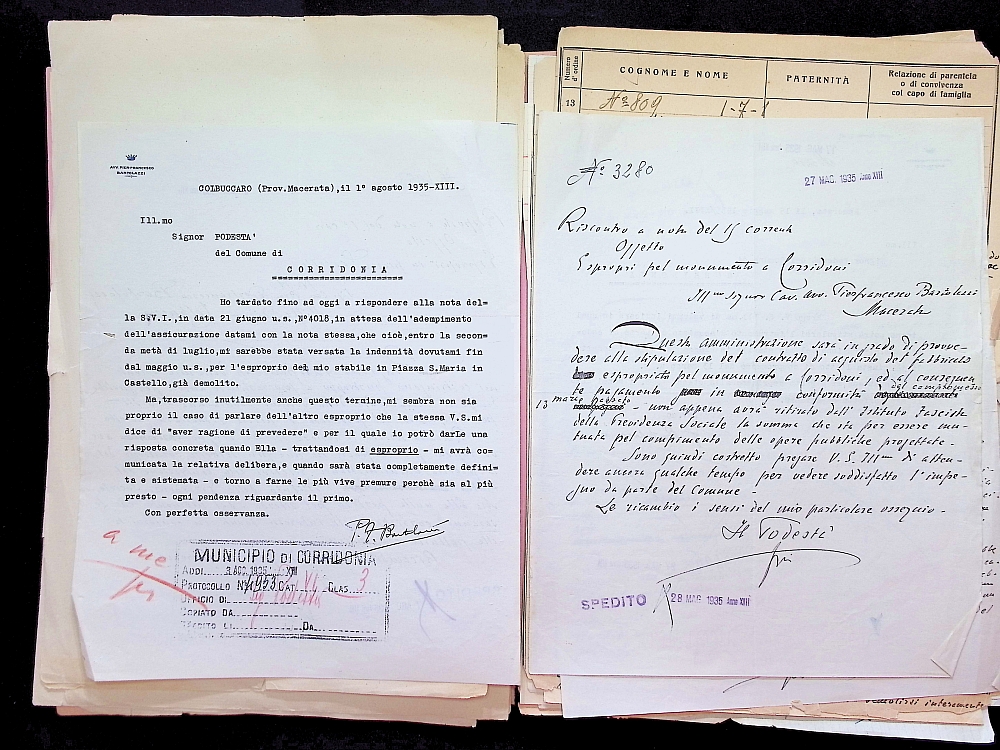 AVV. PIERFRANCESCO
BARTOLAZZI
COLBUCCARO (Prov.Macerata),il 1° agosto 1935-XIII.
Ill.mo
Signor PODESTA'
del Comune di
CORRIDONIA
Ho tardato fino ad oggi a rispondere alla nota del=
la S.V.I.,in data 21 giugno u.s.,N°4018,in attesa dell'adempimento
dell'assicurazione datami con la nota stessa,che cioè,entro la secon=
da metà di luglio,mi sarebbe stata versata la indennità dovutami fin
dal maggio u.s.,per l'esproprio del mio stabile in Piazza S.Maria in
Castello,già demolito.
Ma,trascorso inutilmente anche questo termine,mi sembra non sia
proprio il caso di parlare dell'altro esproprio che la stessa V.S.mi
dice di "aver ragione di prevedere" e per il quale io potrò darLe una
risposta concreta quando Ella - trattandosi di esproprio - mi avrà co=
municata la relativa delibera,e quando sarà stata completamente defini=
ta e sistemata - e torno a farne le più vive premure perchè sia al più
presto - ogni pendenza riguardante il primo.
Con perfetta osservanza.
a me
MUNICIPIO DI CORRIDONIA
ADDI 3 AGO. 1935 XIII
PROTOCOLLO N. 4953 CAT. VI CLAS. 3
UFFICIO DI
COPIATO DA
SPEDITO IL DA
Numero d'ordine
COGNOME E NOME
PATERNITÀ
Relazione di parentela
o di convivenza
col capo di famiglia
13
N° 809
1-7-
N° 3280
27 MAG. 1935 Anno XIII
Riscontro a nota del 15 corrente
Oggetto
Espropri pel monumento a Corridoni
Ill.mo Signor Cav. Avv. Pierfrancesco Bartolazzi
Macerata
Questa amministrazione sarà in grado di provve=
dere alla stipulazione del contratto di acquisto del fabbricato
espropriato pel monumento a Corridoni, ed al conseguen
te pagamento in conformità del compromesso
13 marzo passato - non appena avrà ritirato dall'Istituto Fascista
della Previdenza Sociale la somma che sta per essere mu=
tuata pel compimento delle opere pubbliche progettate.
Sono quindi costretto pregare V.S. Ill.ma di atten=
dere ancora qualche tempo per vedere soddisfatto l'impe=
gno da parte del Comune -
Le ricambio i sensi del mio particolare ossequio -
Il Podestà
SPEDITO
28 MAG. 1935 Anno XIII
demolirsi interamente